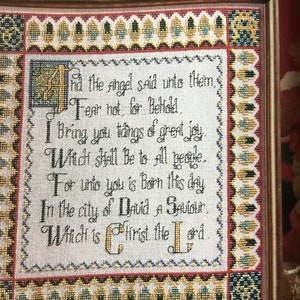 And the angel said unto them,
Fear not, for behold
I Bring you tidings of great joy,
Which shall be to all people.
For unto you is Born this day
In the city of David a Saviour,
Which is Christ the Lord